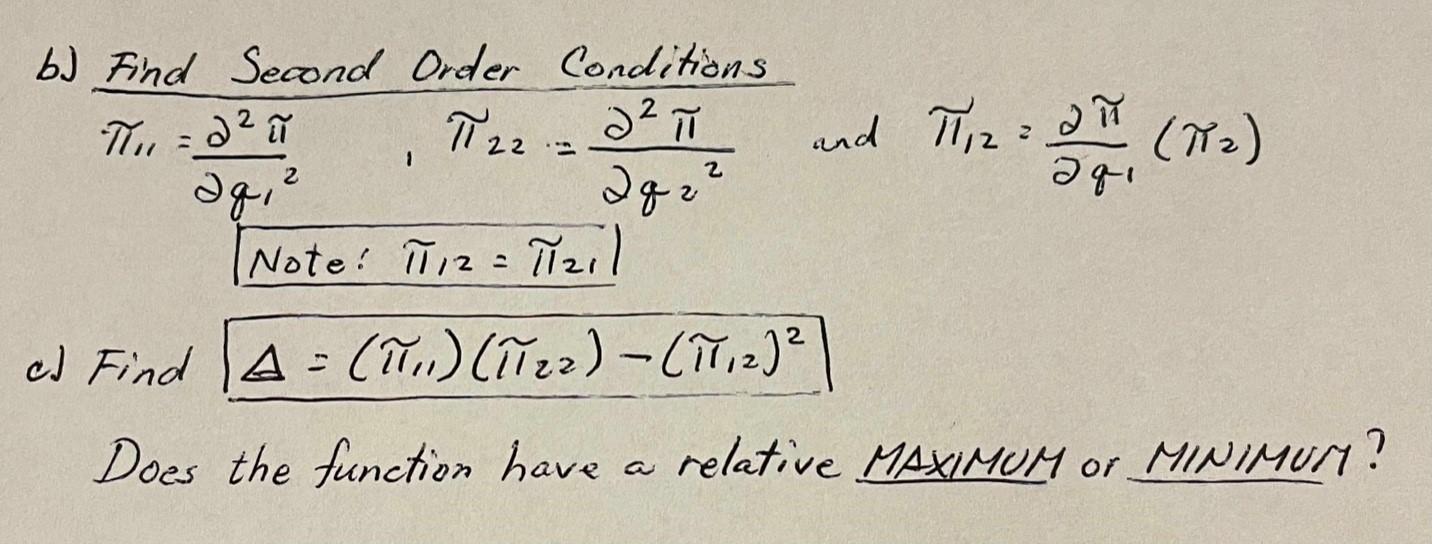 b) Find Second Order Conditions
π₁₁ = ∂²π/∂q₁² , π₂₂ = ∂²π/∂q₂² and π₁₂ = ∂π/∂q₁ (π₂)
Note: π₁₂ = π₂₁
c) Find Δ = (π₁₁)(π₂₂) - (π₁₂)²
Does the function have a relative MAXIMUM or MINIMUM?